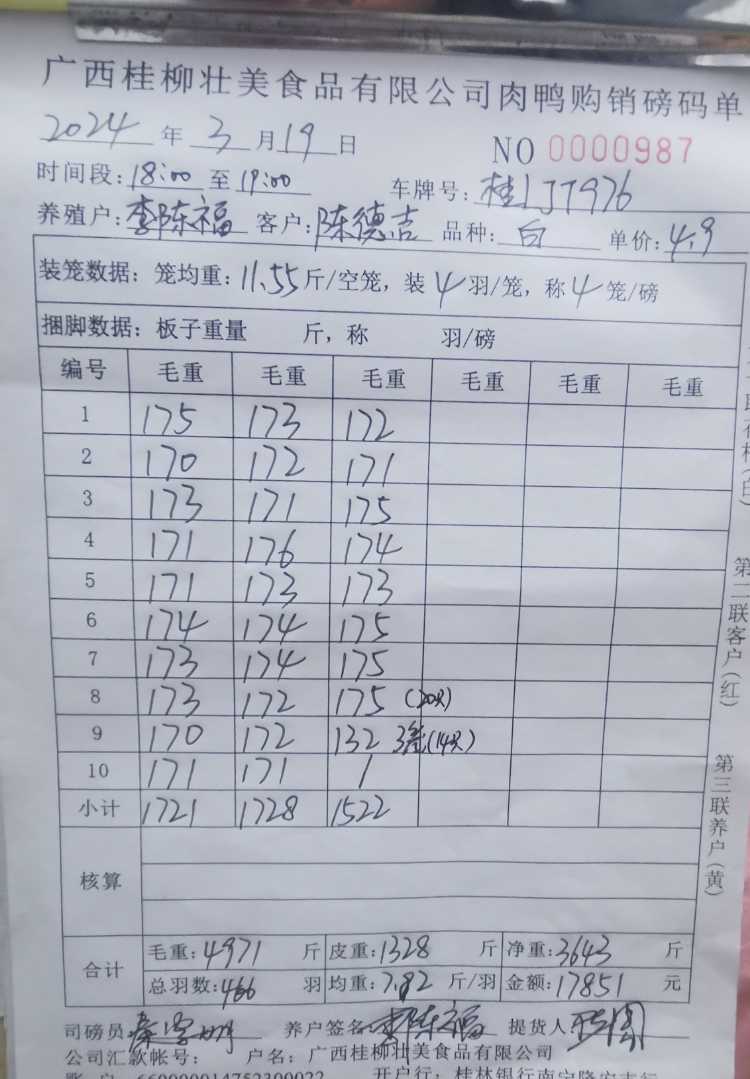 广西桂柳壮美食品有限公司肉鸭购销磅码单
2024 年 3 月 19 日 NO 0000987
时间段: 18:00 至 19:00 车牌号: 桂LJT976
养殖户: 李陈福 客户: 陈德吉 品种: 白 单价: 4.9
装笼数据: 笼均重: 11.55 斤/空笼, 装 4 羽/笼, 称 4 笼/磅
捆脚数据: 板子重量 斤, 称 羽/磅
编号 毛重 毛重 毛重 毛重 毛重 毛重
1 175 173 172
2 170 172 171
3 173 171 175
4 171 176 174
5 171 173 173
6 174 174 175
7 173 174 175
8 173 172 175 (20只)
9 170 172 132 3笼(14只)
10 171 171 /
小计 1721 1728 1522
核算
合计 毛重: 4971 斤 皮重: 1328 斤 净重: 3643 斤
总羽数: 466 羽 均重: 7.82 斤/羽 金额: 17851 元
司磅员 养户签名 李陈福 提货人
公司汇款帐号: 户名: 广西桂柳壮美食品有限公司
第二联客户(红)
第三联养户(黄)